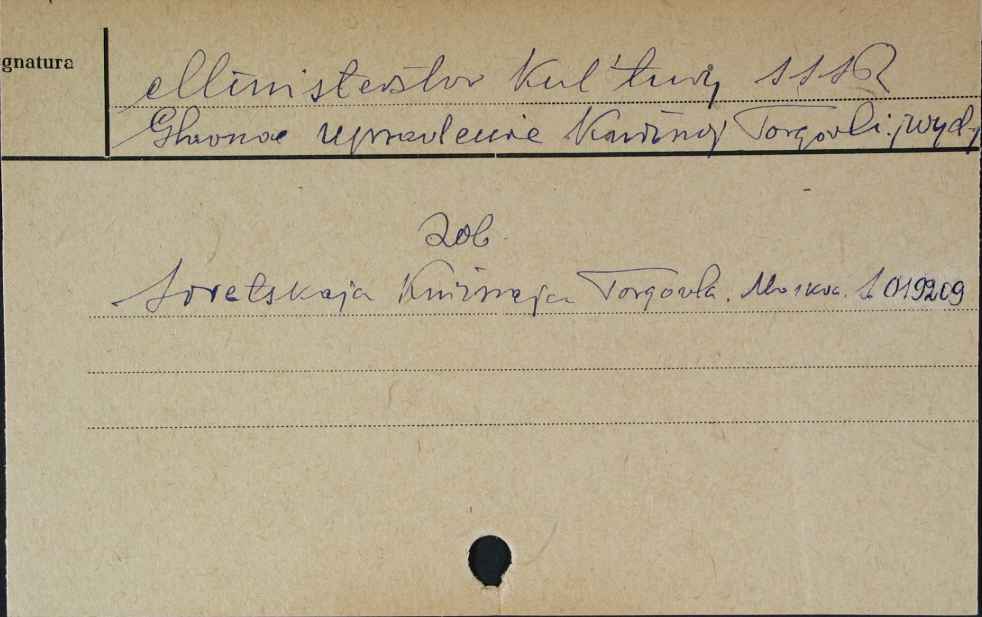 gnatura
Ministerstvo Kul'tury SSSR
Glavnoe upravlenie Knižnoj Torgovli. /wyd./
zob.
Sovetskaja Knižnaja Torgovla. Moskva. 1019209